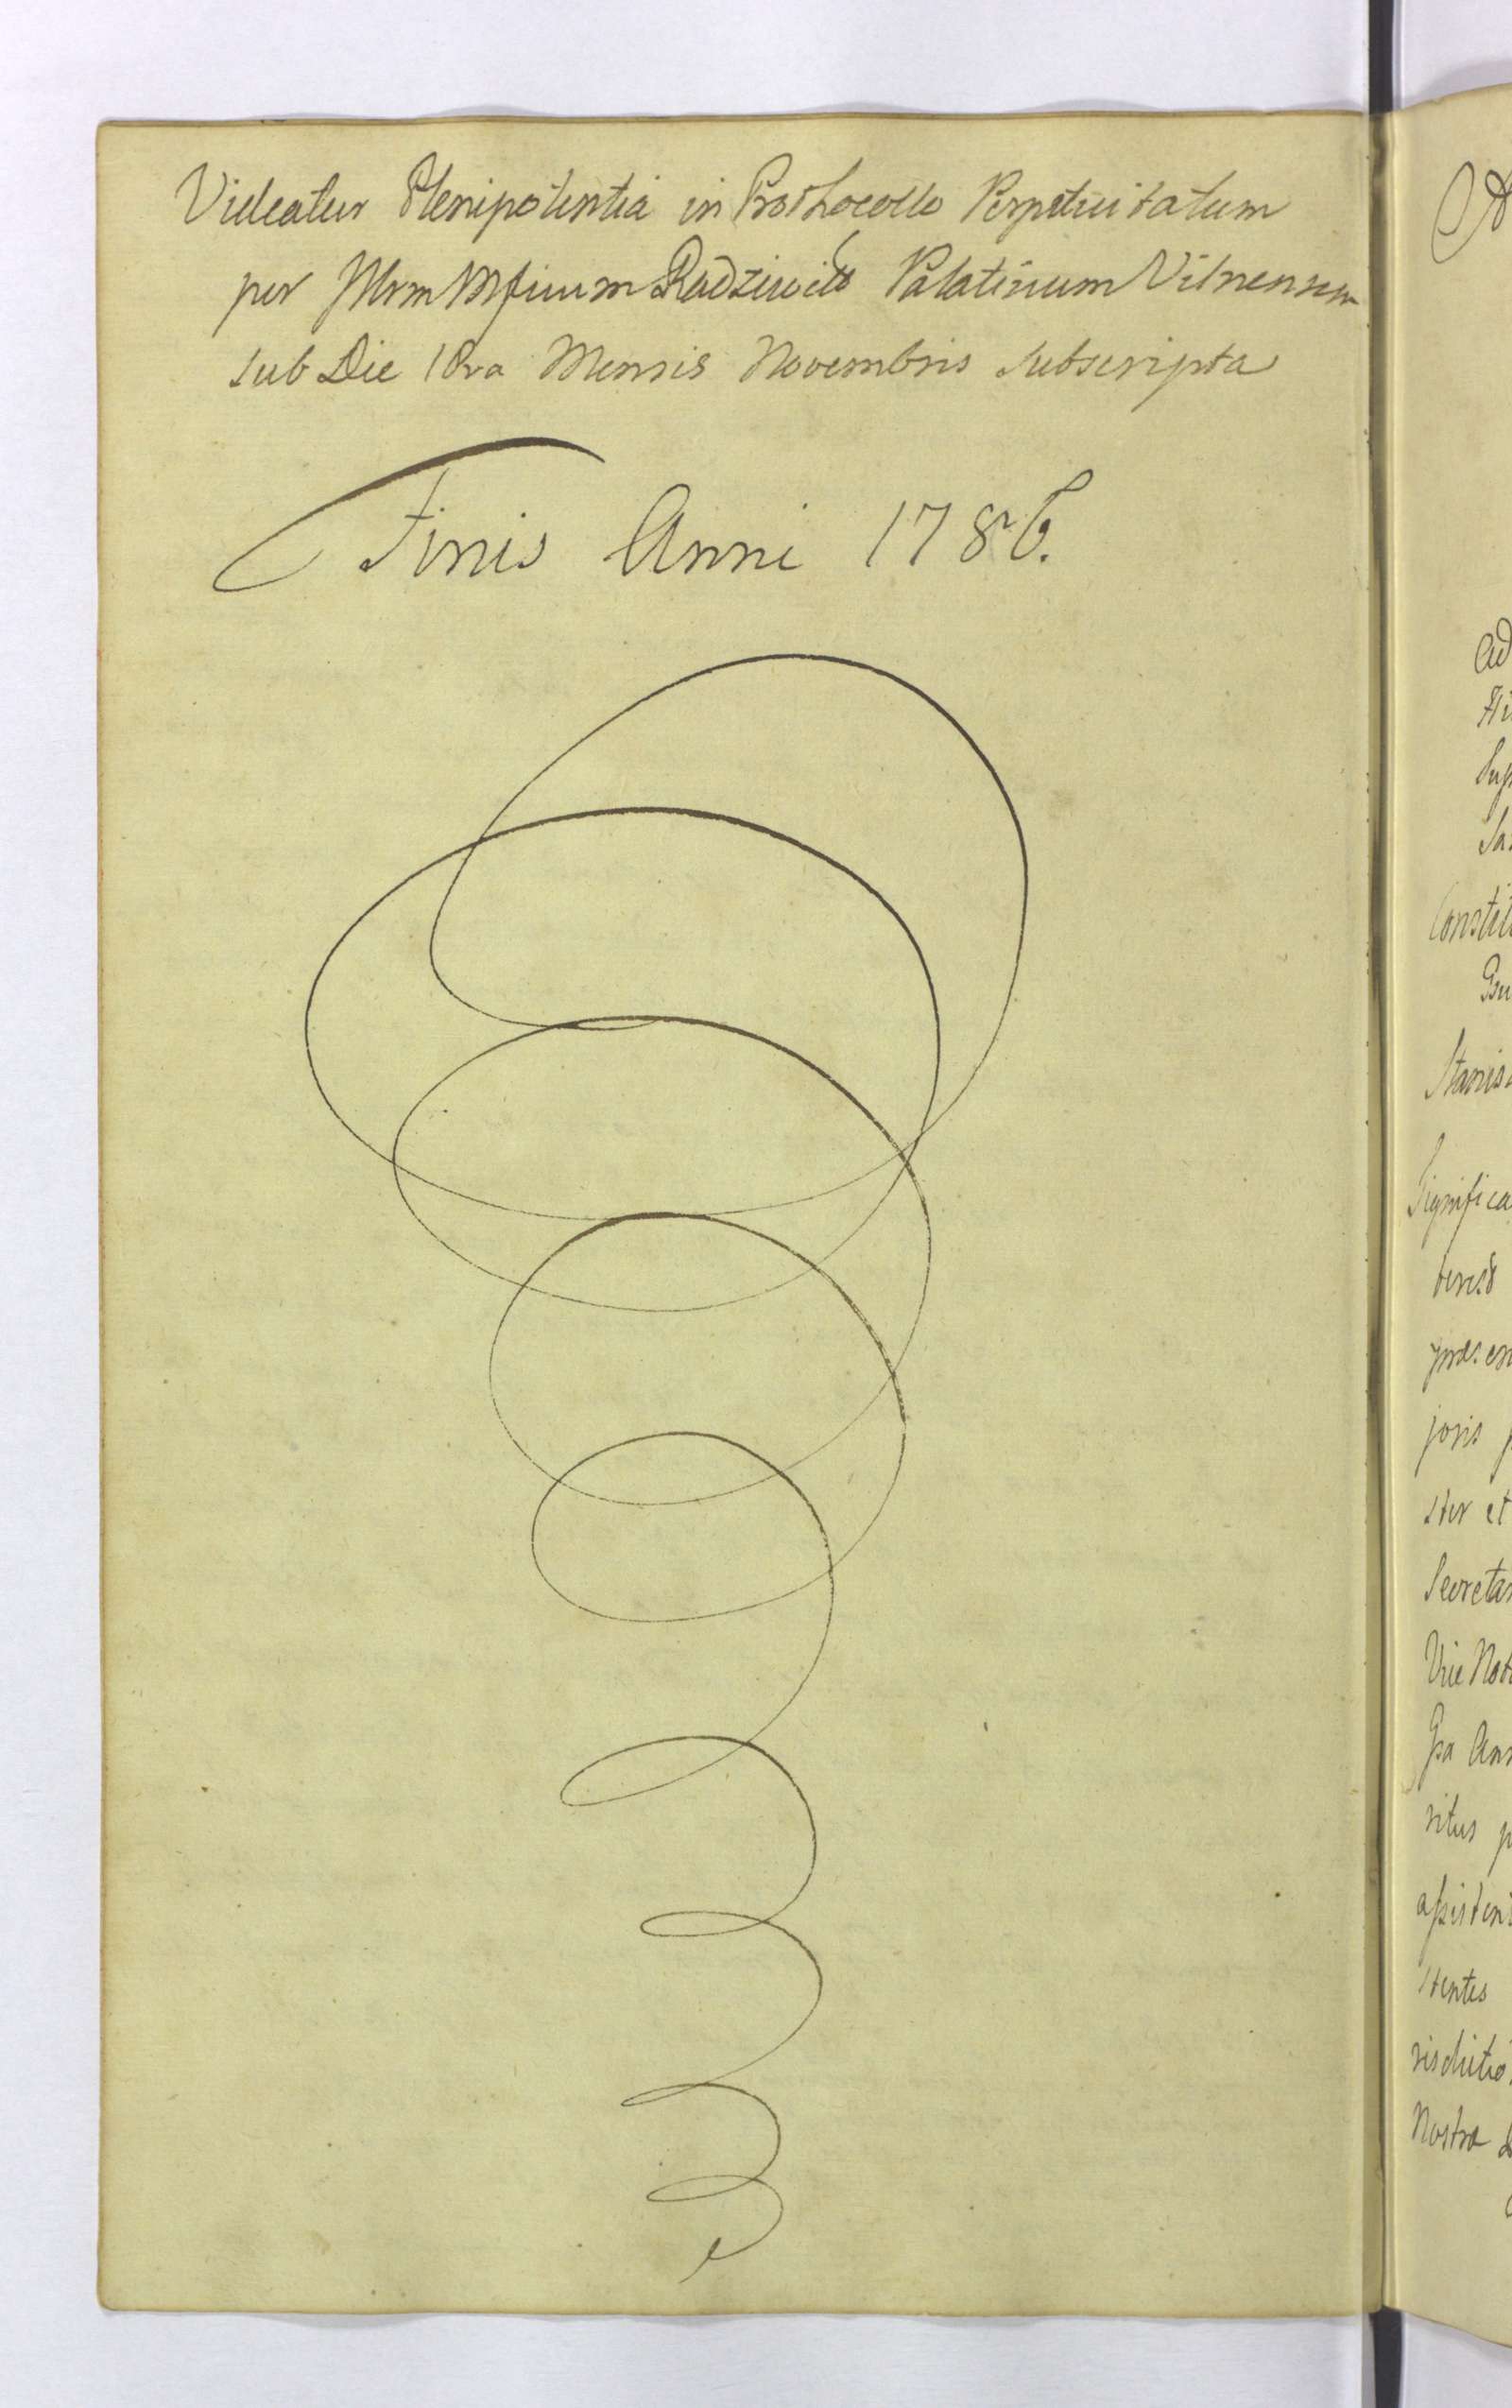 Videatur Plenipotentia in Prothocollo Perpetuitatum
per Illrm Mficum Radziwiłł Palatinum Vilnensem
sub Die 18va Mensis Novembris subscripta
Finis Anni 1786.
Ad
Constit
Stanis
Significa
præsen
joris
ster et
Secreta
Vice Not
Gsa Ann
ritus p
assistent
stentes
Nostra